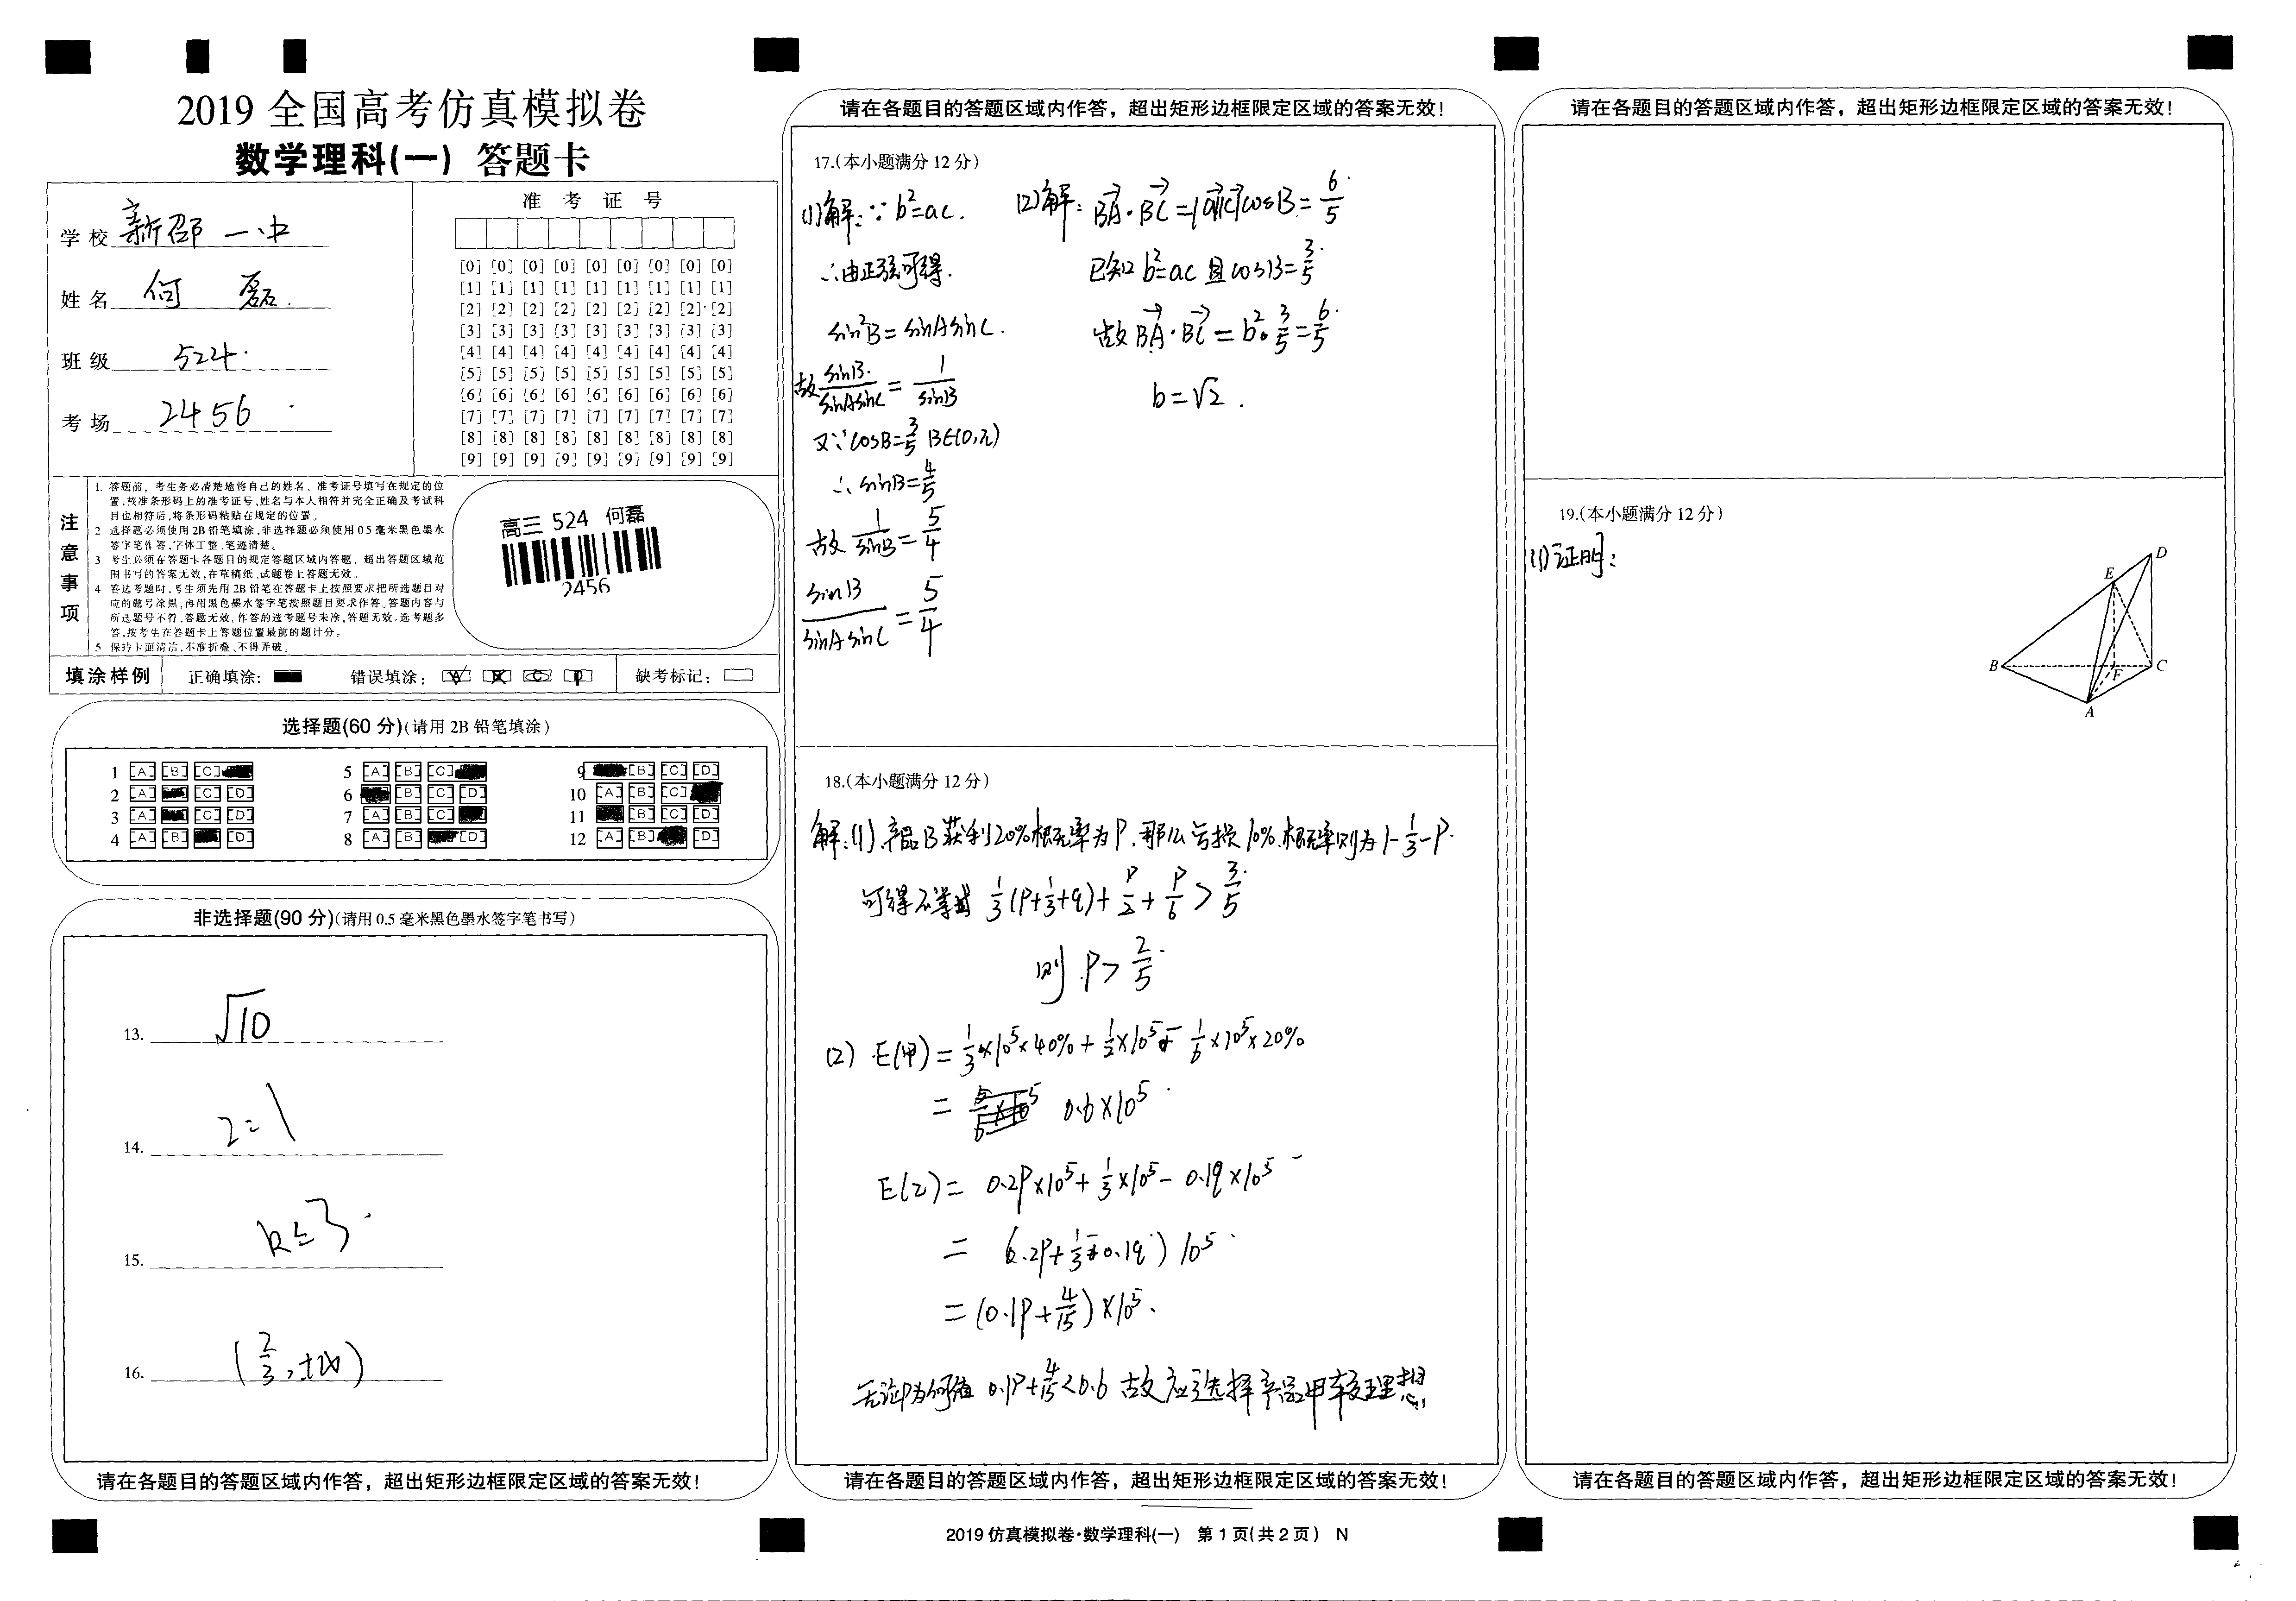 2019 全国高考仿真模拟卷
数学理科(一) 答题卡
学校 新邵一中
姓名 何磊
班级 524
考场 2456
准考证号
[0] [0] [0] [0] [0] [0] [0] [0] [0]
[1] [1] [1] [1] [1] [1] [1] [1] [1]
[2] [2] [2] [2] [2] [2] [2] [2] [2]
[3] [3] [3] [3] [3] [3] [3] [3] [3]
[4] [4] [4] [4] [4] [4] [4] [4] [4]
[5] [5] [5] [5] [5] [5] [5] [5] [5]
[6] [6] [6] [6] [6] [6] [6] [6] [6]
[7] [7] [7] [7] [7] [7] [7] [7] [7]
[8] [8] [8] [8] [8] [8] [8] [8] [8]
[9] [9] [9] [9] [9] [9] [9] [9] [9]
注意事项
1. 答题前，考生务必清楚地将自己的姓名、准考证号填写在规定的位
置，核准条形码上的准考证号、姓名与本人相符并完全正确及考试科
目也相符后，将条形码粘贴在规定的位置。
2 选择题必须使用 2B 铅笔填涂，非选择题必须使用 0 5 毫米黑色墨水
签字笔作答，字体工整、笔迹清楚。
3 考生必须在答题卡各题目的规定答题区域内答题，超出答题区域范
围书写的答案无效，在草稿纸、试题卷上答题无效。
4 答选考题时，考生须先用 2B 铅笔在答题卡上按照要求把所选题目对
应的题号涂黑，再用黑色墨水签字笔按照题目要求作答。答题内容与
所选题号不符，答题无效。作答的选考题号未涂，答题无效。选考题多
答，按考生在答题卡上答题位置最前的题计分。
5 保持卡面清洁，不准折叠、不得弄破。
高三 524 何磊
2456
填涂样例 正确填涂： 错误填涂： 缺考标记：
选择题(60 分)(请用 2B 铅笔填涂)
1 [A] [B] [C] 5 [A] [B] [C] 9 [B] [C] [D]
2 [A] [C] [D] 6 [B] [C] [D] 10 [A] [B] [C]
3 [A] [C] [D] 7 [A] [B] [C] 11 [B] [C] [D]
4 [A] [B] [D] 8 [A] [B] [D] 12 [A] [B] [D]
非选择题(90 分)(请用 0.5 毫米黑色墨水签字笔书写)
13. √10
14. z=1
15. k≤3.
16. (2/3,+∞)
请在各题目的答题区域内作答，超出矩形边框限定区域的答案无效！
请在各题目的答题区域内作答，超出矩形边框限定区域的答案无效！
17.(本小题满分 12 分)
(1)解:∵b²=ac.
∴由正弦可得.
sin²B=sinAsinC.
故 sinB/sinAsinC = 1/sinB
又∵cosB=3/5 B∈(0,π)
∴ sinB=4/5
故 1/sinB = 5/4
sinB/sinAsinC = 5/4
(2)解: BA·BC=|a||c|cosB=6/5
已知 b²=ac 且 cosB=3/5
故 BA·BC=b²·3/5=6/5
b=√2.
18.(本小题满分 12 分)
解:(1).产品B获利20%概率为P,那么亏损10%.概率则为1-1/3-P.
可得不等式 1/3(P+1/3+q)+P/2+P/6>3/5
则 P>2/5
(2) E(甲)=1/3×10⁵×40%+1/2×10⁵-1/6×10⁵×20%
= 0.6×10⁵
E(乙)= 0.2P×10⁵+1/3×10⁵-0.1q×10⁵
= (0.2P+1/3-0.1q)10⁵
=(0.1P+4/15)×10⁵.
无论P为何值 0.1P+4/15<0.6 故应选择产品甲较理想
请在各题目的答题区域内作答，超出矩形边框限定区域的答案无效！
2019 仿真模拟卷·数学理科(一) 第 1 页(共 2 页) N
请在各题目的答题区域内作答，超出矩形边框限定区域的答案无效！
19.(本小题满分 12 分)
(1)证明:
D
E
B
C
F
A
请在各题目的答题区域内作答，超出矩形边框限定区域的答案无效！